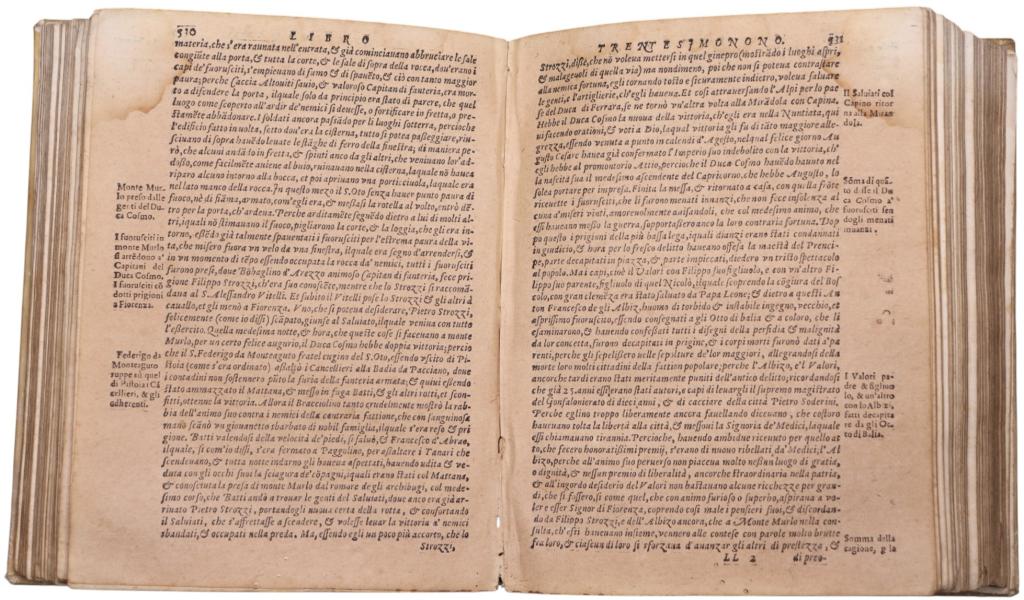 530 LIBRO
materia, che s'era raunata nell'entrata, & già cominciauano abbruciare le sale
congiũte alla porta, & tutta la corte, & le sale di sopra della rocca, dou'erano i
capi de' fuorusciti, s'empieuano di fumo & di spauẽto, & ciò con tanto maggior
paura; perche Caccia Altouiti sauio, & valoroso Capitan di fanteria, era mor-
to a difendere la porta, ilquale solo da principio era stato di parere, che quel
luogo come scoperto all'ardir de' nemici si deuesse, o fortificare in fretta, o pre-
stamẽte abbãdonare. I soldati ancora passãdo per li luoghi sotterra, percioche
l'edificio fatto in uolta, sotto dou'era la cisterna, tutto si potea passeggiare, riu-
sciuano di sopra hauẽdo leuate le stãghe di ferro della finestra; di maniera pe-
rò, che alcuni andãdo in fretta, & spinti anco da gli altri, che veniuano lor'ad-
dosso, come facilmẽte auiene al buio, ruinauano nella cisterna, laquale nõ hauea
riparo alcuno intorno alla bocca, et poi apriuano vna porticciuola, laquale era
nel lato manco della rocca. In questo mezo il S. Oto senza hauer punto paura di
fuoco, nè di fiãma, armato, com'egli era, & messasi la rotella al volto, entrò dẽ-
tro per la porta, ch'ardea. Perche arditamẽte seguẽdo dietro a lui di molti al-
tri, iquali nõ stimauano il fuoco, pigliarono la corte, & la loggia, che gli era in-
torno, essẽdo già talmente spauentati i fuorusciti per l'estrema paura della vi-
ta, che misero fuora vn velo da vna finestra, ilquale era segno d'arrendersi, &
in vn momento di tẽpo essendo occupata la rocca da' nemici, tutti i fuorusciti
furono presi, doue Bõbaglino d'Arezzo animoso capitan di fanteria, fece pri-
gione Filippo Strozzi, ch'era suo conoscẽte, mentre che lo Strozzi si raccomã-
daua al S. Alessandro Vitelli. Et subito il Vitelli pose lo Strozzi & gli altri à
cauallo, et gli menò a Fiorenza. Vno, che si potea desiderare, Pietro Strozzi,
felicemente (come io dissi) scãpato, giunse al Saluiato, ilquale veniua con tutto
l'essercito. Quella medesima notte, & hora, che queste cose si faceuano a monte
Murlo, per un certo felice augurio, il Duca Cosmo hebbe doppia vittoria; percio
che il S. Federigo da Monteaguto fratel cugino del S. Oto, essendo vscito di Pi-
stoia (come s'era ordinato) assaliò i Cancellieri alla Badia da Pacciano, doue
i contadini non sostennero pũto la furia della fanteria armata; & quini essendo
stato ammazzato il Mattana, & messo in fuga Batti, & gli altri rotti, et scon-
fitti, ottenne la vittoria. Allora il Bracciolino tanto crudelmente mostrò la rab-
bia dell'animo suo contra i nemici della contraria fattione, che con sanguinosa
mano scãnò vn giouanetto sbarbato di nobil famiglia, ilquale s'era reso & pri-
gione. Batti valendosi della velocità de' piedi, si saluò, & Francesco d'Abrao,
ilquale, si com'io dissi, s'era fermato a Paggolino, per assaltare i Tanari che
scendeuano, & tutta notte indarno gli haueua aspettati, hauendo udita & ve-
duta con gli occhi suoi la sciagura de' cõpagni, iquali erano stati col Mattana,
& conosciuta la presa di monte Murlo dal romore degli archibugi, col mede-
simo corso, che Batti andò a trouar le genti del Saluiati, doue anco era già ar-
riuato Pietro Strozzi, portandogli nuoua certa della rotta, & confortando
il Saluiati, che s'affrettasse a scendere, & volesse leuar la vittoria a' nemici
sbandati, & occupati nella preda. Ma, essendo egli un poco più accorto, che lo
Strozzi,
Monte Mur-
lo preso dalle
genti del Du-
ca Cosmo.
I fuorusciti in
monte Murlo
si arrẽdono a'
Capitani del
Duca Cosmo.
I fuorusciti cõ
dotti prigioni
a Fiorenza.
Federigo da
Monteaguto
ruppe ad quel
di Pistoia i Cã
cellieri, & gli
adherenti.
TRENTESIMONONO. 531
Strozzi, disse, che nõ voleua mettersi in quel ginepro (mostrãdo i luoghi aspri,
& malageuoli di quella via) ma nondimeno, poi che non si poteua contrastare
alla nemica fortuna, egli tornando tosto e sicuramente indietro, voleua saluare
le genti, e l'artiglierie, ch'egli haueua. Et così attrauersando l'Alpi per lo pae
se del Duca di Ferrara, se ne tornò vn'altra volta alla Mirãdola con Capino.
Hebbe il Duca Cosmo la nuoua della vittoria, ch'egli era nella Nuntiata, qui
ui facendo orationi, & voti a Dio, laqual vittoria gli fu di tãto maggiore alle-
grezza, essendo venuta a punto in calendi d'Agosto, nelqual felice giorno Au
gusto Cesare hauea già confermato l'Imperio suo indebolito con la vittoria, ch'
egli hebbe al promontorio Attio, percioche il Duca Cosmo hauẽdo hauuto nel
la nascita sua il medesimo ascendente del Capricorno, che hebbe Augusto, lo
solea portare per impresa. Finita la messa, & ritornato a casa, con quella frõte
riceuette i fuorusciti, che li furono menati inanzi, che non fece insolenza al
cuna a' miseri vinti, amoreuolmente auisandoli, che col medesimo animo, che
essi haueano mosso la guerra, sopportassero anco la loro contraria fortuna. Dop
po questo i prigioni della più bassa lega, iquali dianzi erano stati condannati
in giudicio, & hora per lo fresco delitto haueano offesa la maestà del Prenci-
pe, parte decapitati in piazza, & parte impiccati, diedero vn tristo spettacolo
al popolo. Ma i capi, cioè il Valori con Filippo suo figliuolo, e con vn'altro Fi-
lippo suo parente, figliuolo di quel Nicolò, ilquale scoprendo la cõgiura del Bos
colo, con gran clemẽza era stato saluato da Papa Leone; & dietro a questi An
ton Francesco de gli Albizi, huomo di torbido & instabile ingegno, vecchio, et
asprissimo fuoruscito, essendo consegnati a gli Otto di balia & a coloro, che li
essaminarono, & hauendo confessati tutti i disegni della perfidia & malignità
da lor concetta, furono decapitati in prigione, & i corpi morti furono dati a' pa
renti, perche gli sepelissero nelle sepolture de' lor maggiori, allegrandosi della
morte loro molti cittadini della fattion popolare; perche l'Albizo, e'l Valori,
ancorche tardi erano stati meritamente puniti dell'antico delitto; ricordandosi
che già 25. anni essi erano stati autori, e capi di leuargli il supremo magistrato
del Gonfalonierato di dieci anni, & di cacciare della città Pietro Soderini.
Perche eglino troppo liberamente ancora fauellando diceuano, che costoro
haueuano tolta la libertà alla città, & messoui la Signoria de' Medici, laquale
essi chiamauano tirannia. Percioche, hauendo ambidue riceuuto per quello at
to, che fecero honoratissimi premij, s'erano di nuouo ribellati da' Medici; l'Al
bizo, perche all'animo suo peruerso non piaceua molto nessun luogo di gratia,
o dignità, & nessun premio di liberalità, ancorche straordinaria nella patria,
& all'ingordo desiderio del Valori non bastauano alcune ricchezze per gran-
di, che si fossero, si come quel, che con animo furioso o superbo, aspiraua a vo-
lere esser Signor di Fiorenza, coprendo così male i pensieri suoi, & discordan-
do da Filippo Strozzi, e dell'Albizo ancora, che a Monte Murlo nella con-
sulta, ch'essi haueuano insieme, vennero alle contese con parole molto brutte
fra loro, & ciascun di loro si sforzaua d'auanzar gli altri di prestezza, &
LL 2 di pron-
Il Saluiati col
Capino ritor
na alla Miran
dola.
Sõma di quã-
to disse il Du
ca Cosmo a'
fuorusciti sen
dogli menati
inanti.
I Valori pa-
dre & figliuo
lo, & un'altro
con lo Albizo,
fatti decapita
re da gli Ot-
to di Balia.
Somma della
cagione, p la